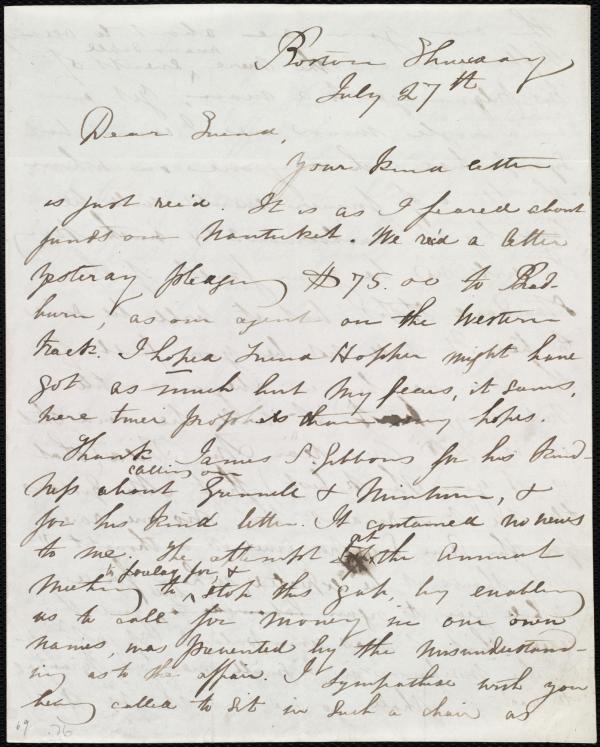 Boston Thursday
July 27th
Dear Friend,
Your kind letter
is just rec'd. It is as I feared about
funds on Nantucket. We rec'd a letter
yesterday pledging $75.00 to Brad-
burn, as our agent on the Western
track. I hoped Friend Hopper might have
got as much but my fears, it seems,
were truer prophets than my hopes.
Thank James S. Gibbons for his kind-
calling on
ness about Grinnell & Minturn, &
for his kind letter. It contained no news
to me. The attempt at the Annual
Meeting to stop this gap, by enabling
us to call for money in our own
names, was prevented by the misunderstand-
ing as to the affair. I sympathise with you
being called to sit in such a chair as
69 .76